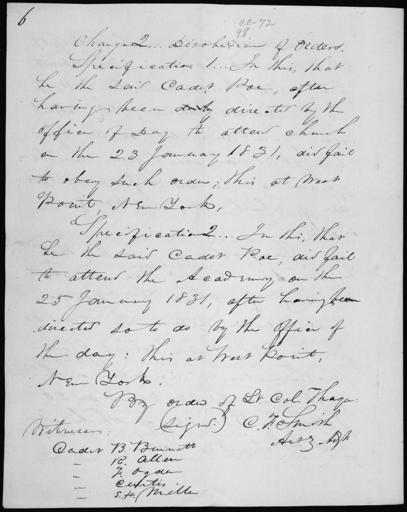 6
CC-72
98
Charge 2... Disobedience of Orders.
Specification 1... In this, that
he the said Cadet Poe, after
having been duly directed by the
officer of Day to attend church
on the 23 January 1831, did fail
to obey such order; this at West
Point, New York,
Specification 2... In this, that
he the said Cadet Poe, did fail
to attend the Academy on the
25 January 1831, after having been
directed so to do by the officer of
the day: this at West Point,
New York.
By order of Lt. Col. Thayer
(Signed) C. F. Smith
Act'g Adjt
Witnesses:
Cadet B. Burnett
" R. Allen
" F. Ogden
" Curtis
" S. H. Miller